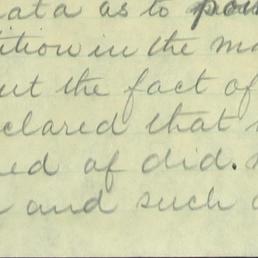 ata as to pow
ition in the ma
ut the fact of
clared that
ed of did.
and such